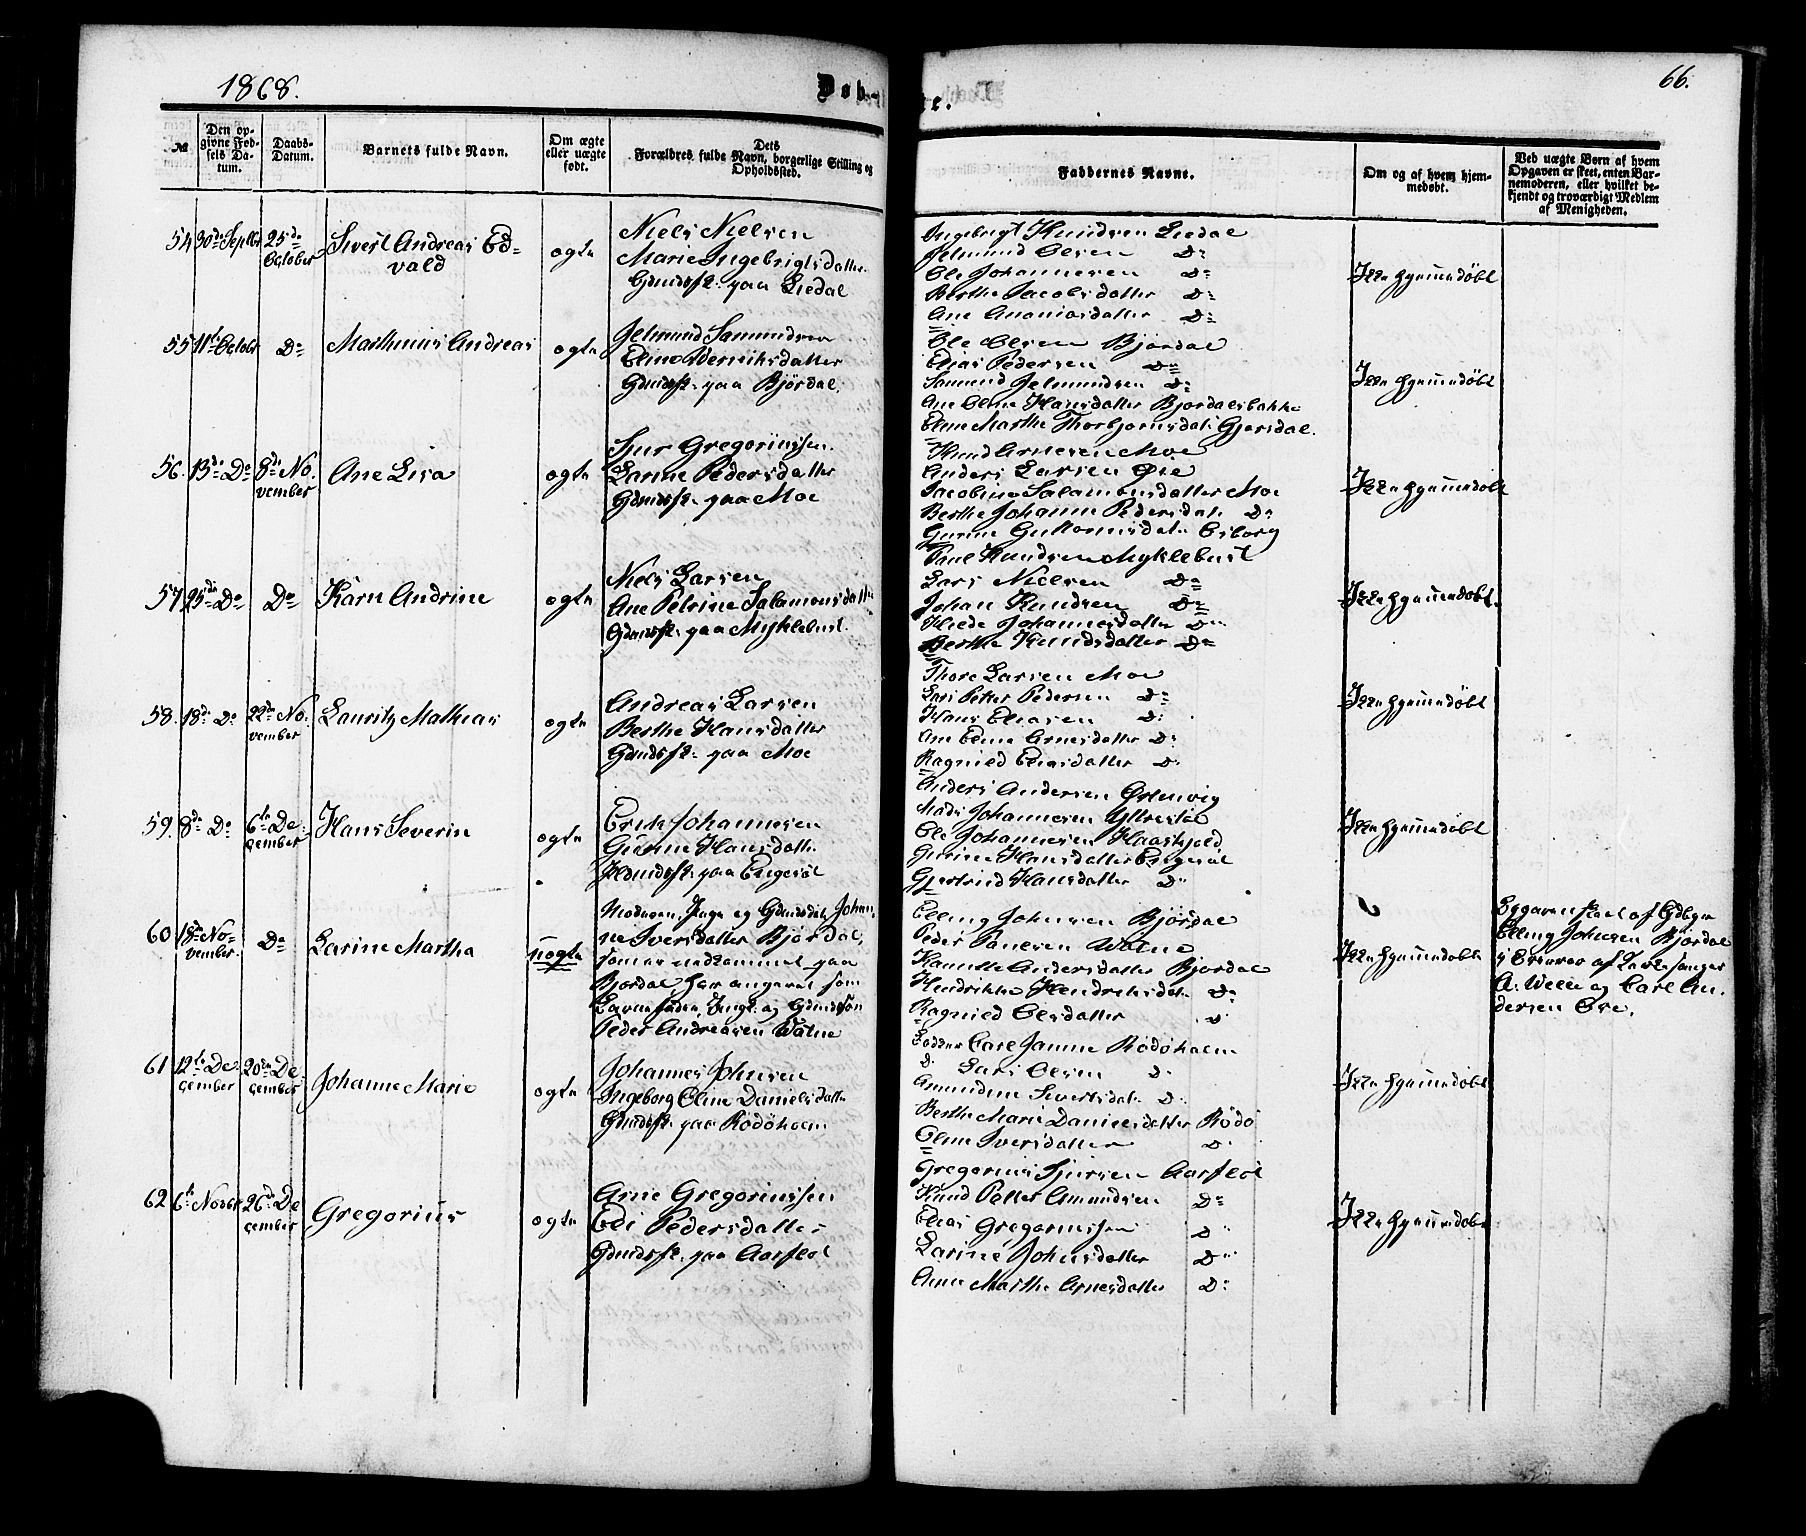 1868.
Døb-
te.
66.
№
Den op-
givne Fød-
sels Da-
tum.
Daabs-
Datum.
Barnets fulde Navn.
Om ægte
eller uægte
født.
Dets
Forældres fulde Navn, borgerlige Stilling og
Opholdssted.
Faddernes Navne.
Om og af hvem hjem-
medøbt.
Ved uægte Børn af hvem
Opgaven er skeet, enten Bar-
nemoderen, eller hvilket be-
kjendt og troværdigt Medlem
af Menigheden.
54 30de Septbr 25de
October
Sivert Andreas Ed-
vald
ægte
Niels Nielsen
Marie Ingebrigtsdatter
Gdmdsfk. paa Liedal
Ingebrigt Knudsen Liedal
Jelmund Olsen Do
Ole Johannesen Do
Berthe Jacobsdatter Do
Ane Ananiasdatter Do
Ikke hjemmedøbt
55 11te Octobr Do
Mathinus Andreas
ægte
Jelmund Samundsen
Eline Henriksdatter
Gdmdsfk. paa Bjørdal.
Ole Olsen Bjørdal
Elias Pedersen Do
Samund Jelmundsen Do
Ane Oline Hansdatter Bjørdalsbakke
Eline Marthe Thorbjørnsdat. Gjersdal.
Ikke hjemmedøbt
56. 13de Do 8de No-
vember
Ane Lisa
ægte
Sjur Gregoriussen
Larine Pedersdatter
Gdmdsfk. paa Moe
Knud Arnesen Moe
Anders Larsen Øre
Jacobine Salamonsdatter Moe
Berthe Johanne Pedersdat. Do
Gurine Guttormsdat. Osborg
Ikke hjemmedøbt
57 25de Do Do
Karn Andrine
ægte
Niels Larsen
Ane Petrine Salamonsdatter
Gdmdsfk. paa Myklebust.
Paul Knudsen Myklebust
Lars Nielsen Do
Johan Knudsen Do
Johannesdatter Do
Berthe Knudsdatter Do
Ikke hjemmedøbt.
58. 18de Do 22de No-
vember
Lauritz Mathias
ægte
Andreas Larsen
Berthe Hansdatter
Gdmdsfk. paa Moe
Thore Larsen Moe
Lars Petter Pedersen Do
Hans Eliasen Do
Ane Eline Arnesdatter Do
Ragnild Eliasdatter Do
Ikke hjemmedøbt
59. 8de Do 6te De-
cember
Hans Severin
ægte
Erik Johannesen
Gurine Hansdatter
Hdmdsfk. paa Engesæt
Anders Andersen Østenvig
Mads Johannesen Yttrestøl
Ole Johannesen Haaskjold
Gurine Hansdatter Engesæt
Gjertrud Hansdatter Do
Ikke hjemmedøbt
60 18de No-
vember. Do
Larine Martha
uægte
Moderen, Inge og Gdmdsdtr. Johan-
ne Iversdatter Bjørdal,
som er nedkommet paa
Bjørdal har angivet som
Barnefader, Ungk. og Gdmdssøn
Peder Andreasen Watne
Elling Johnsen Bjørdal
Peder Paulsen Watne
Andersdatter Bjørdal
Hendrikke Hendriksdat. Do
Ragnild Olsdatter Do
Ikke hjemmedøbt
Opgaven skeet af Gdbgr.
Elling Johnsen Bjørdal
i Nærvær af Kirkesanger
A. Welle og Carl An-
dersen Øre.
61 12te De-
cember 20de De-
cember
Johanne Marie
ægte
Johannes Johnsen
Ingeborg Eline Danielsdatter
Gdmdsfk. paa Rødøholm
Carl Janne Rødøholm
Do Lars Olsen Do
Amundine Sivertsdat. Do
Berthe Marie Danielsdatter Rødø
Eline Iversdatter Do
Ikke hjemmedøbt
62 6te Novbr 26de De-
cember
Gregorius
ægte
Arne Gregoriussen
Eli Pedersdatter
Gdmdsfk. paa Aarflot
Gregorius Sjursen Aarflot
Knud Petter Amundsen Do
Elias Gregoriussen Do
Larine Johnsdatter Do
Anne Marthe Arnesdatter Do
Ikke hjemmedøbt